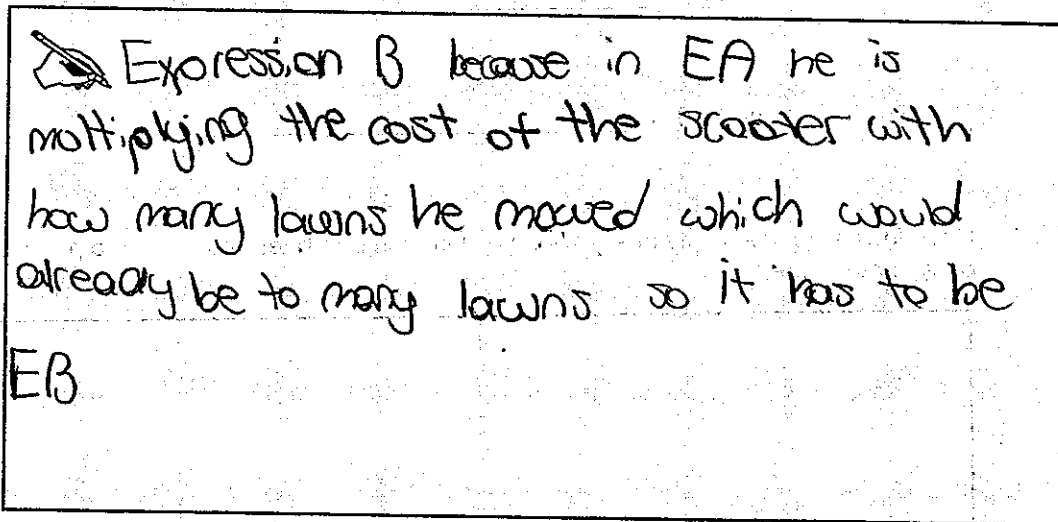 Expression B because in EA he is
moltiplying the cost of the scooter with
how many lawns he mowed which would
already be to many lawns so it has to be
EB